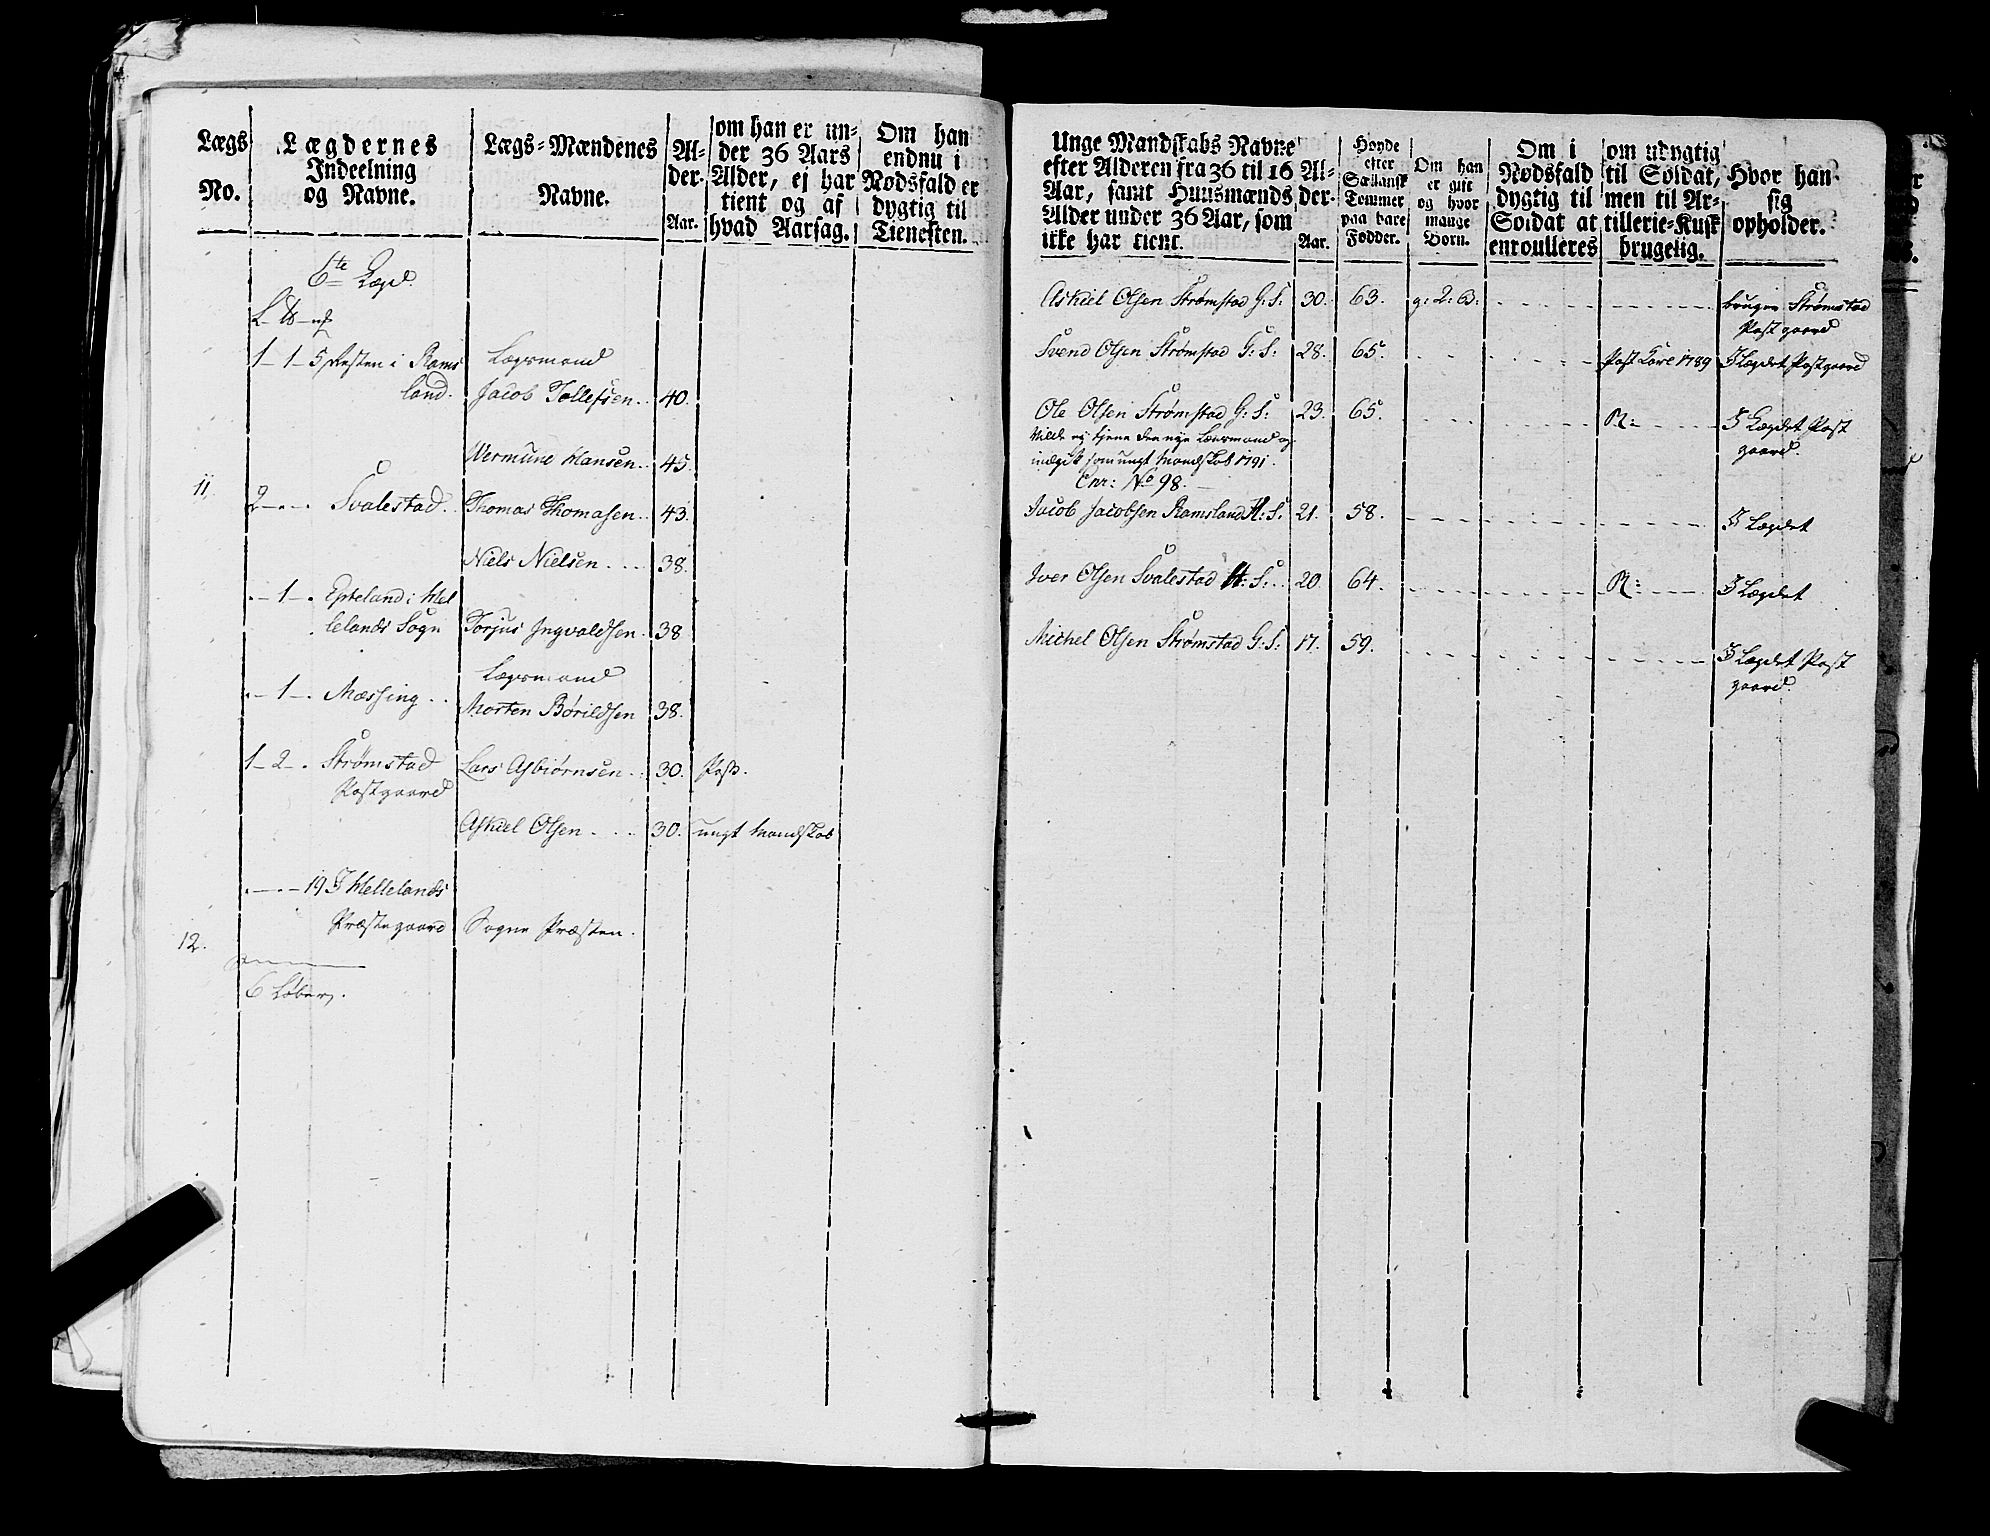 Lægs
No.
Lægdernes
Indeelning
og Navne.
Lægs-Mændenes
Navne.
Al-
der.
Aar.
om han er un-
der 36 Aars
Alder, ej har
tient og af
hvad Aarsag.
Om han
endnu i
Nødsfald er
dygtig til
Tienesten.
6te Lægd.
1 - 1 - 5 Resten i Rams
land.
Lægsmand
Jacob Tollefsen . . 40.
Wermune Hansen . . 45.
11.
2 - . - . Svalestad . . Thomas Thomasen . . 43.
Niels Nielsen . . . . 38.
. - 1 - . Epteland i Hel
lelands Sogn Torjus Ingvaldsen . 38
Lægsmand
. - 1 - . Mæssing . . Morten Børildsen 38.
1 - 2 - . Strømstad Lars Asbiørnsen . . 30. Post.
Postgaard
Askiel Olsen . . . . 30. ungt Mandskab
. - . - 19 I Hellelands
Præstegaard Sogne Præsten .
12.
6 Løber.
Unge Mandskabs Navne
efter Alderen fra 36 til 16
Aar, samt Huusmænds
Alder under 36 Aar, som
ikke har tient.
Al-
der.
Aar.
Høyde
efter
Sællansk
Tommer
paa bare
Fødder.
Om han
er gift
og hvor
mange
Børn.
Om i
Nødsfald
dygtig til
Soldat at
enroulleres
om udygtig
til Soldat,
men til Ar-
tillerie-Kusk
brugelig.
Hvor han
sig
opholder.
Askiel Olsen Strømstad G: S: 30. 63. g: 2: B: bruger Strømstad
Postgaard
Svend Olsen Strømstad G: S: 28. 65. Post Kare 1789 I Lægdet Postgaard
Ole Olsen Strømstad G: S: 23. 65. R: I Lægdet Post
gaard.
Vilde ej tjene den nye Lænsmand og
indgik som ungt Mandskab 1791.
Enr: No 98.
Jacob Jacobsen Ramsland H: S: 21. 58. I Lægdet
Iver Olsen Svalestad H: S: . . 20. 64. R: I Lægdet
Michel Olsen Strømstad G: S: 17. 59. I Lægdet Post
gaard.